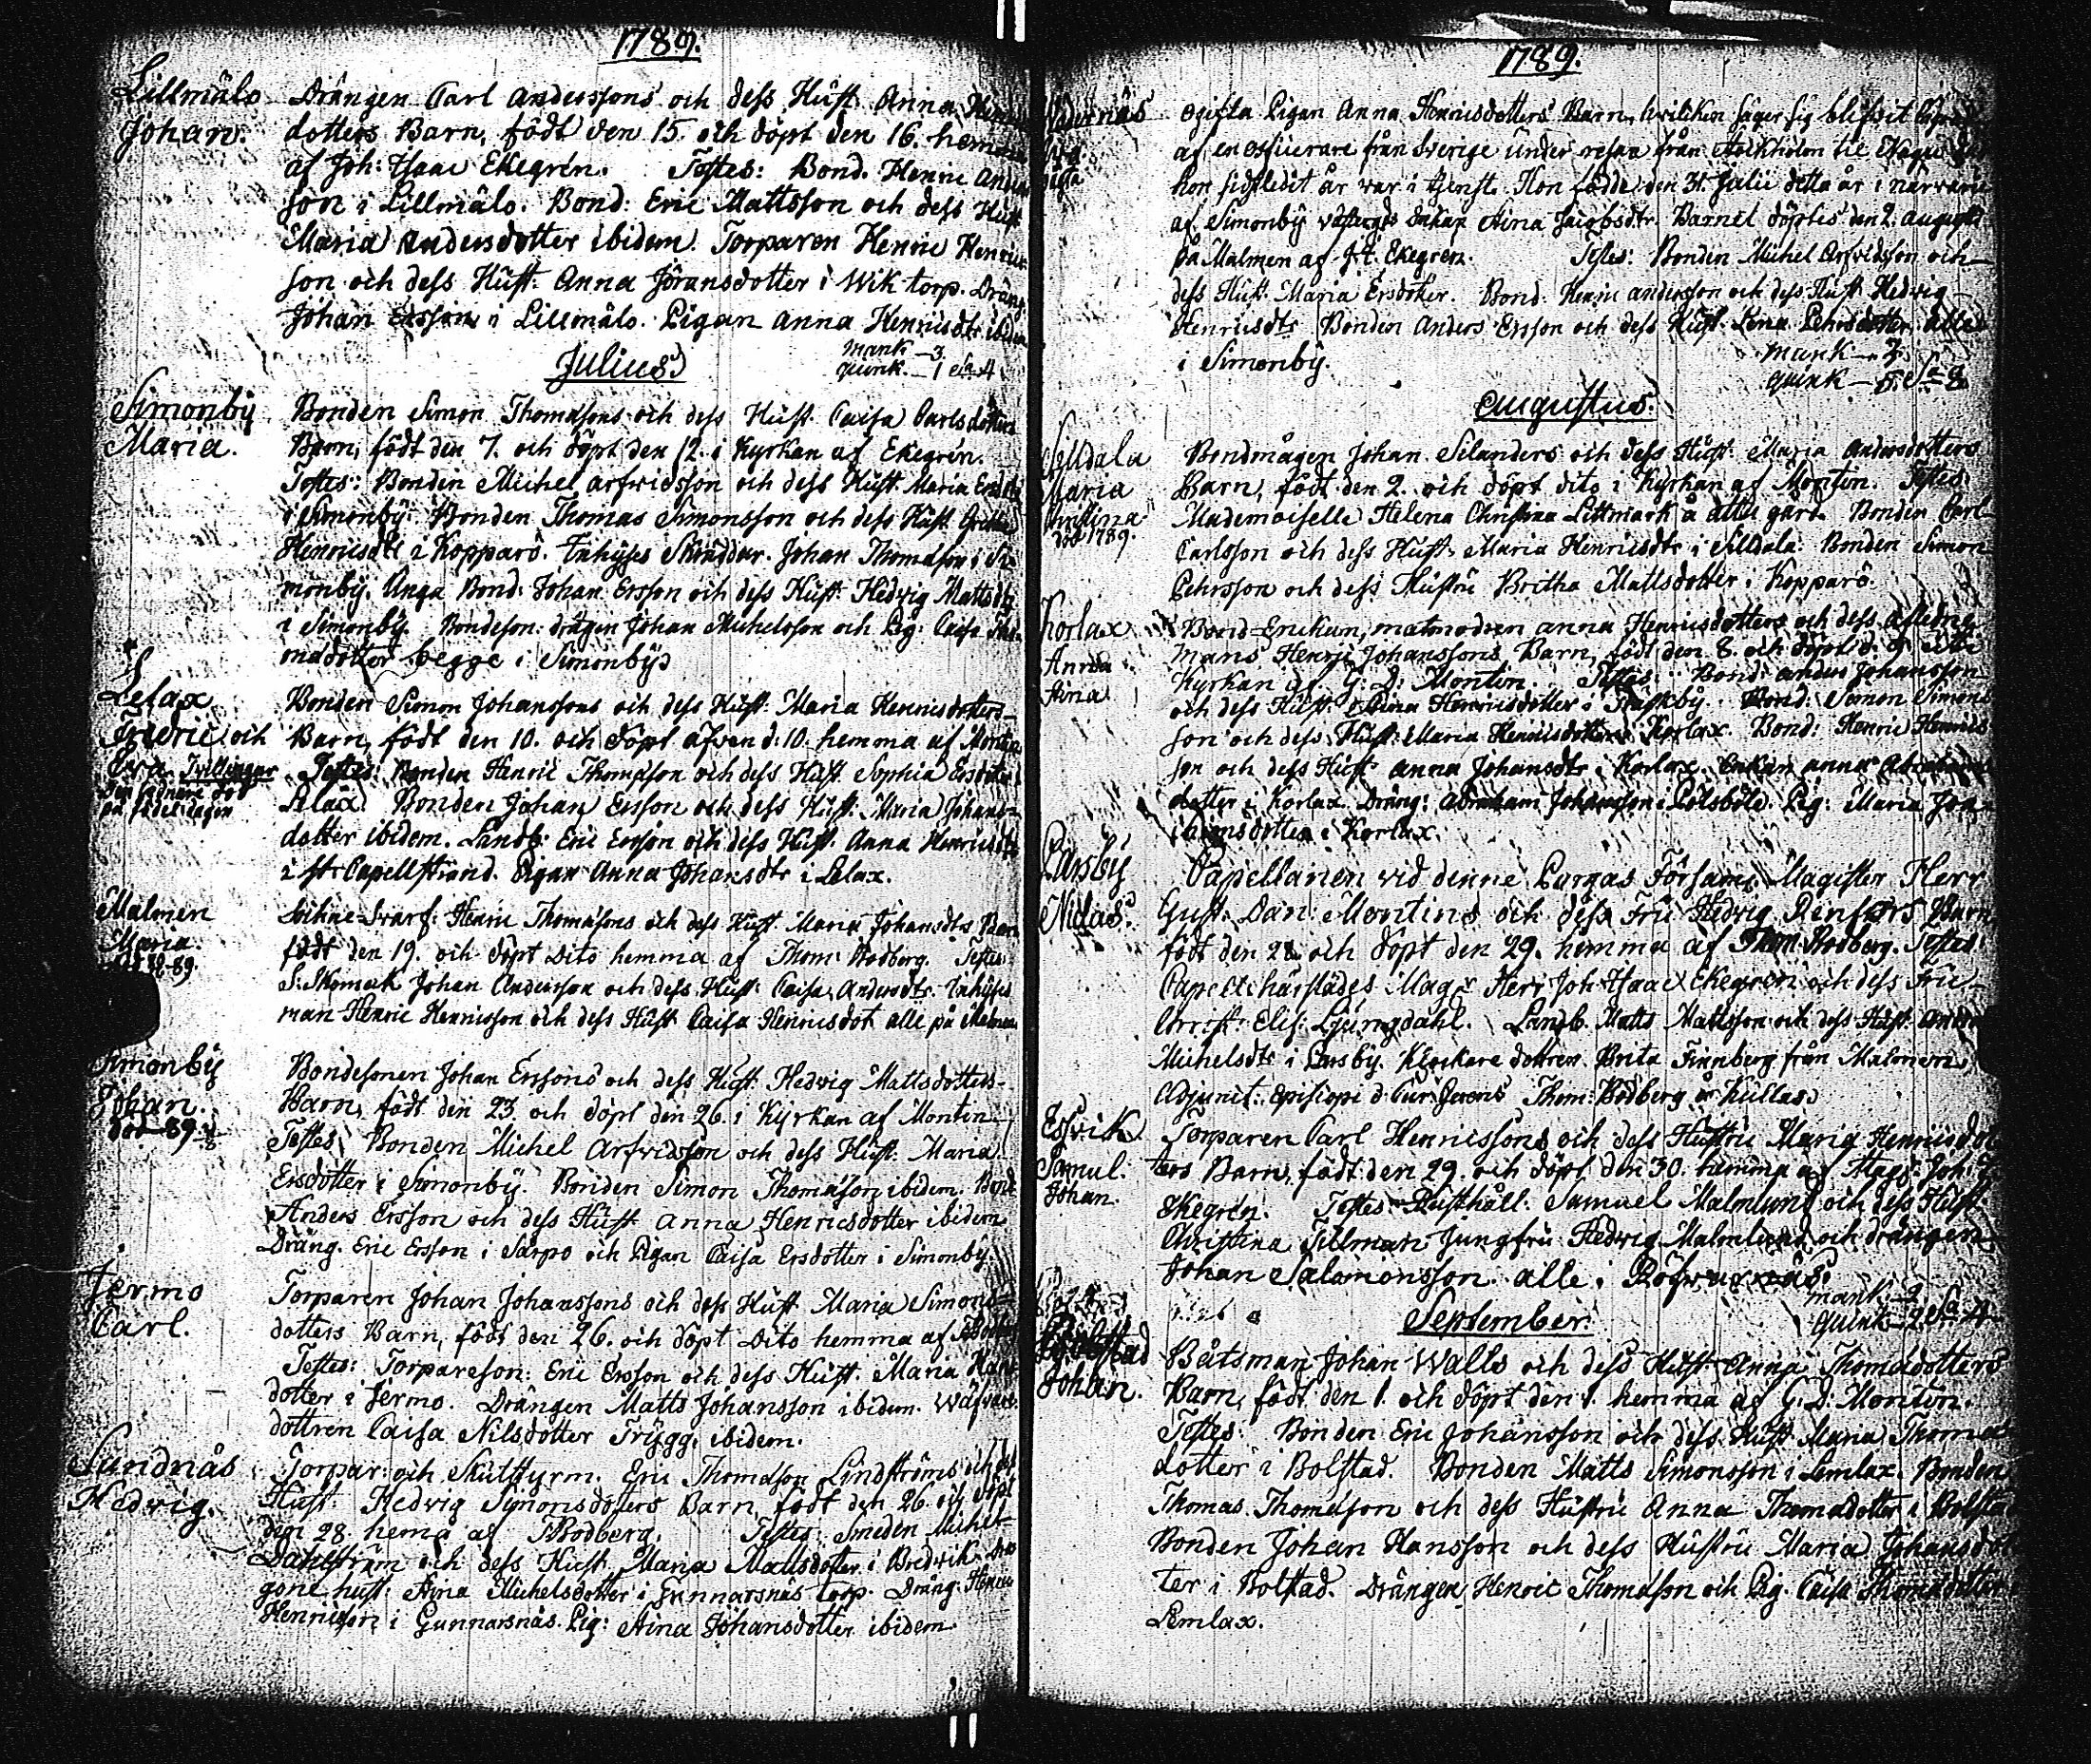 1789.
Lillmälö Drängen Carl Anderssons och dess Hust. Anna
Johan. dotters Barn, född den 15. och döpt den 16. hemma
af Joh: Isaac Ekegrén. Testes: Bond. Henric
son i Lillmälö. Bond: Eric Mattsson och dess Hust
Maria Andersdotter ibidem. Torparen Henric
son och dess Hust. Anna Jöransdotter i Wik torp. Dräng
Johan Ersson i Lillmälö. Pigan Anna Henricsdtr
Julius mank — 3.
quink. — 1 Sa 4
Simonby Bonden Simon Thomassons och dess Hust. Caisa Carlsdotters
Maria. Barn, född den 7. och döpt den 12. i Kyrkan af Ekegrén.
Testes: Bonden Michel Arfwidsson och dess Hust Maria
i Simonby. Bonden Thomas Simonsson och dess Hust
Henricsdtr i Kopparö. Inhyses Skräddar. Johan Thomasson i Si
monby. Unga Bond: Johan Ersson och dess Hust Hedvig Mattsdtr
i Simonby. Bondeson: drägen Johan Michelsson och Pig: Caisa
madotter begge i Simonby
Lelax Bonden Simon Johanssons och dess Hust: Maria Henricsdotters
Fredric och Barn, född den 10. och döpt äfven d. 10. hemma af Montin
Eva Tvillingar Testes: Bonden Henric Thomasson och dess Hust Sophia Ersdotter
den sednare död Lelax. Bonden Johan Ersson och dess Hust: Maria Johans
på födelsdagen dotter ibidem. Landb: Eric Ersson och dess Hust. Anna Henricsdtr
i Capellstrand. Pigan Anna Johansdtr i Lelax.
Malmen Sockne Svarf: Henric Thomassons och dess Hust Maria Johansdtrs Barn
Maria. född den 19. och döpt Dito hemma af Thom: Bodberg. Testes:
89. S: Skomak Johan Andersson och dess Hust Caisa Andersdtr. Inhyses
man Henric Henricsson och dess Hust Caisa Henricsdot alle på Malmen
Simonby Bondesonen Johan Erssons och dess Hust Hedvig Mattsdotters
Johan. Barn, född den 23. och döpt den 26. i Kyrkan af Montin
död 89 Testes: Bonden Michel Arfvidsson och dess Hust: Maria
Ersdotter i Simonby. Bonden Simon Thomasson ibidem. Bond
Anders Ersson och dess Hust Anna Henricsdotter ibidem
Dräng. Eric Ersson i Sarpo och Pigan Caisa Ersdotter i Simonby.
Jermo Torparen Johan Johanssons och dess Hust Maria Simons
Carl. dotters Barn, född den 26. och döpt Dito hemma af
Testes: Torpareson: Eric Ersson och dess Hust. Maria
dotter i Jermo. Drängen Matts Johansson ibidem.
dottren Caisa Nilsdotter Trygg ibidem.
Sundnäs Torpar: och Skutstyrm. Eric Thomasson Lindströms och dess
Hedvig. Hust: Hedvig Simonsdotters Barn, född den 26. och döpt
den 28. hema af TBodberg. Testes: Smeden Michel
Dahlström och dess Hust Maria Mattsdotter i Bredvik.
gone hust: Stina Michelsdotter i Gunnarsnäs torp. Dräng: Henric
Henricsson i Gunnarsnäs. Pig: Stina Johansdotter ibidem
1789.
ogifta Pigan Anna Henricsdotters Barn, hvilken säger sig blifvit
af en officerare från Sverige under resan från Stockholm til
hon sidstledit år var i tjenst. Hon födde den 31. Julii detta år i närvaro
af Simonby Enkan Stina Jacobsdtr. Barnet döptes den 2. Augusti
på Malmen af J: I: Ekegrén. Testes: Bonden Michel Arfvidsson och
dess Hust. Maria Ersdotter. Bond: Henric Andersson och dess Hust Hedvig
Henricsdtr Bonden Anders Ersson och dess Hust: Lena alle
i Simonby. mank —
quink — Sa 8
Augustus.
Silldala Bondmågen Johan Silanders och dess Hust: Maria Andersdotters
Maria Barn, född den 2. och döpt dito i Kyrkan af Montin. Testes:
Christina Mademoiselle Helena Christina Littmark å gård. Bonden Carl
död 1789. Carlsson och dess Hust. Maria Henricsdtr i Silldala. Bonden Simon
Pehrsson och dess Hustru Britha Mattsdotter i Kopparö.
Korlax Bond-Enckan, matmodren Anna Henricsdotters och dess afledne
Anna mans Henric Johanssons Barn, född den 8. och döpt d. 9. uti
Stina Kyrkan af G: D: Montin. Testes: Bond: Anders Johansson
och dess Hust: Stina Henricsdotter i Träskby. Bond: Simon Simons
son och dess Hust: Maria Henricsdotter i Korlax. Bond: Henric Henrics
son och dess Hust Anna Johansdtr i Korlax. Enkan Anna
dotter i Korlax. Dräng: Abraham Johansson i Lölsböle. Pig: Maria
dotter i Korlax.
Larsby Capellanen vid denne Pargas Församl. Magister Herr
Niclas. Gust: Dan: Montins och dess Fru Hedvig Renfors Barn
född den 28. och döpt den 29. hemma af Thom: Bodberg. Testes:
härstädes Magr Herr Joh: Isaac Ekegrén och dess Fru
Christ: Elis: Ljungdahl. Landb. Matts Mattsson och dess Hust:
Michelsdtr i Larsby. Klockare dottren Brita Finnberg från Malmen
Adjunct: Thom: Bodberg Kullas
Essvik Torparen Carl Henricssons och dess Hustru Maria Henricsdot
Samul: ters Barn, född den 29. och döpt den 30. hemma af Mag: Joh: I
Johan. Ekegrén. Testes: Rusthåll: Samuel Malmlund och dess Hust
Christina Tillman Jungfru Hedvig Malmlund och drängen
Johan Salomonsson alle i Röfvarnäs.
mank — 2
September. quink — 2 Sa 4
Båtsman Johan Walls och dess Hust Anna Thomadotters
Johan. Barn, född den 1. och döpt den 1. hemma af G: D: Montin.
Testes: Bonden Eric Johansson och dess Hust Maria Thoma
dotter i Bolstad. Bonden Matts Simonsson i Lemlax. Bonden
Thomas Thomasson och dess Hustru Anna Thomadotter i Bolstad
Bonden Johan Hansson och dess Hustru Maria Johansdot
ter i Bolstad. Drängen Henric Thomasson och Pig. Caisa Thomadotter
Lemlax.